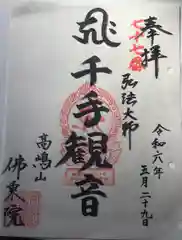 奉拝
七十七番
弘法大師
令和六年
五月二十九日
千手観音
高嶋山
佛衆院